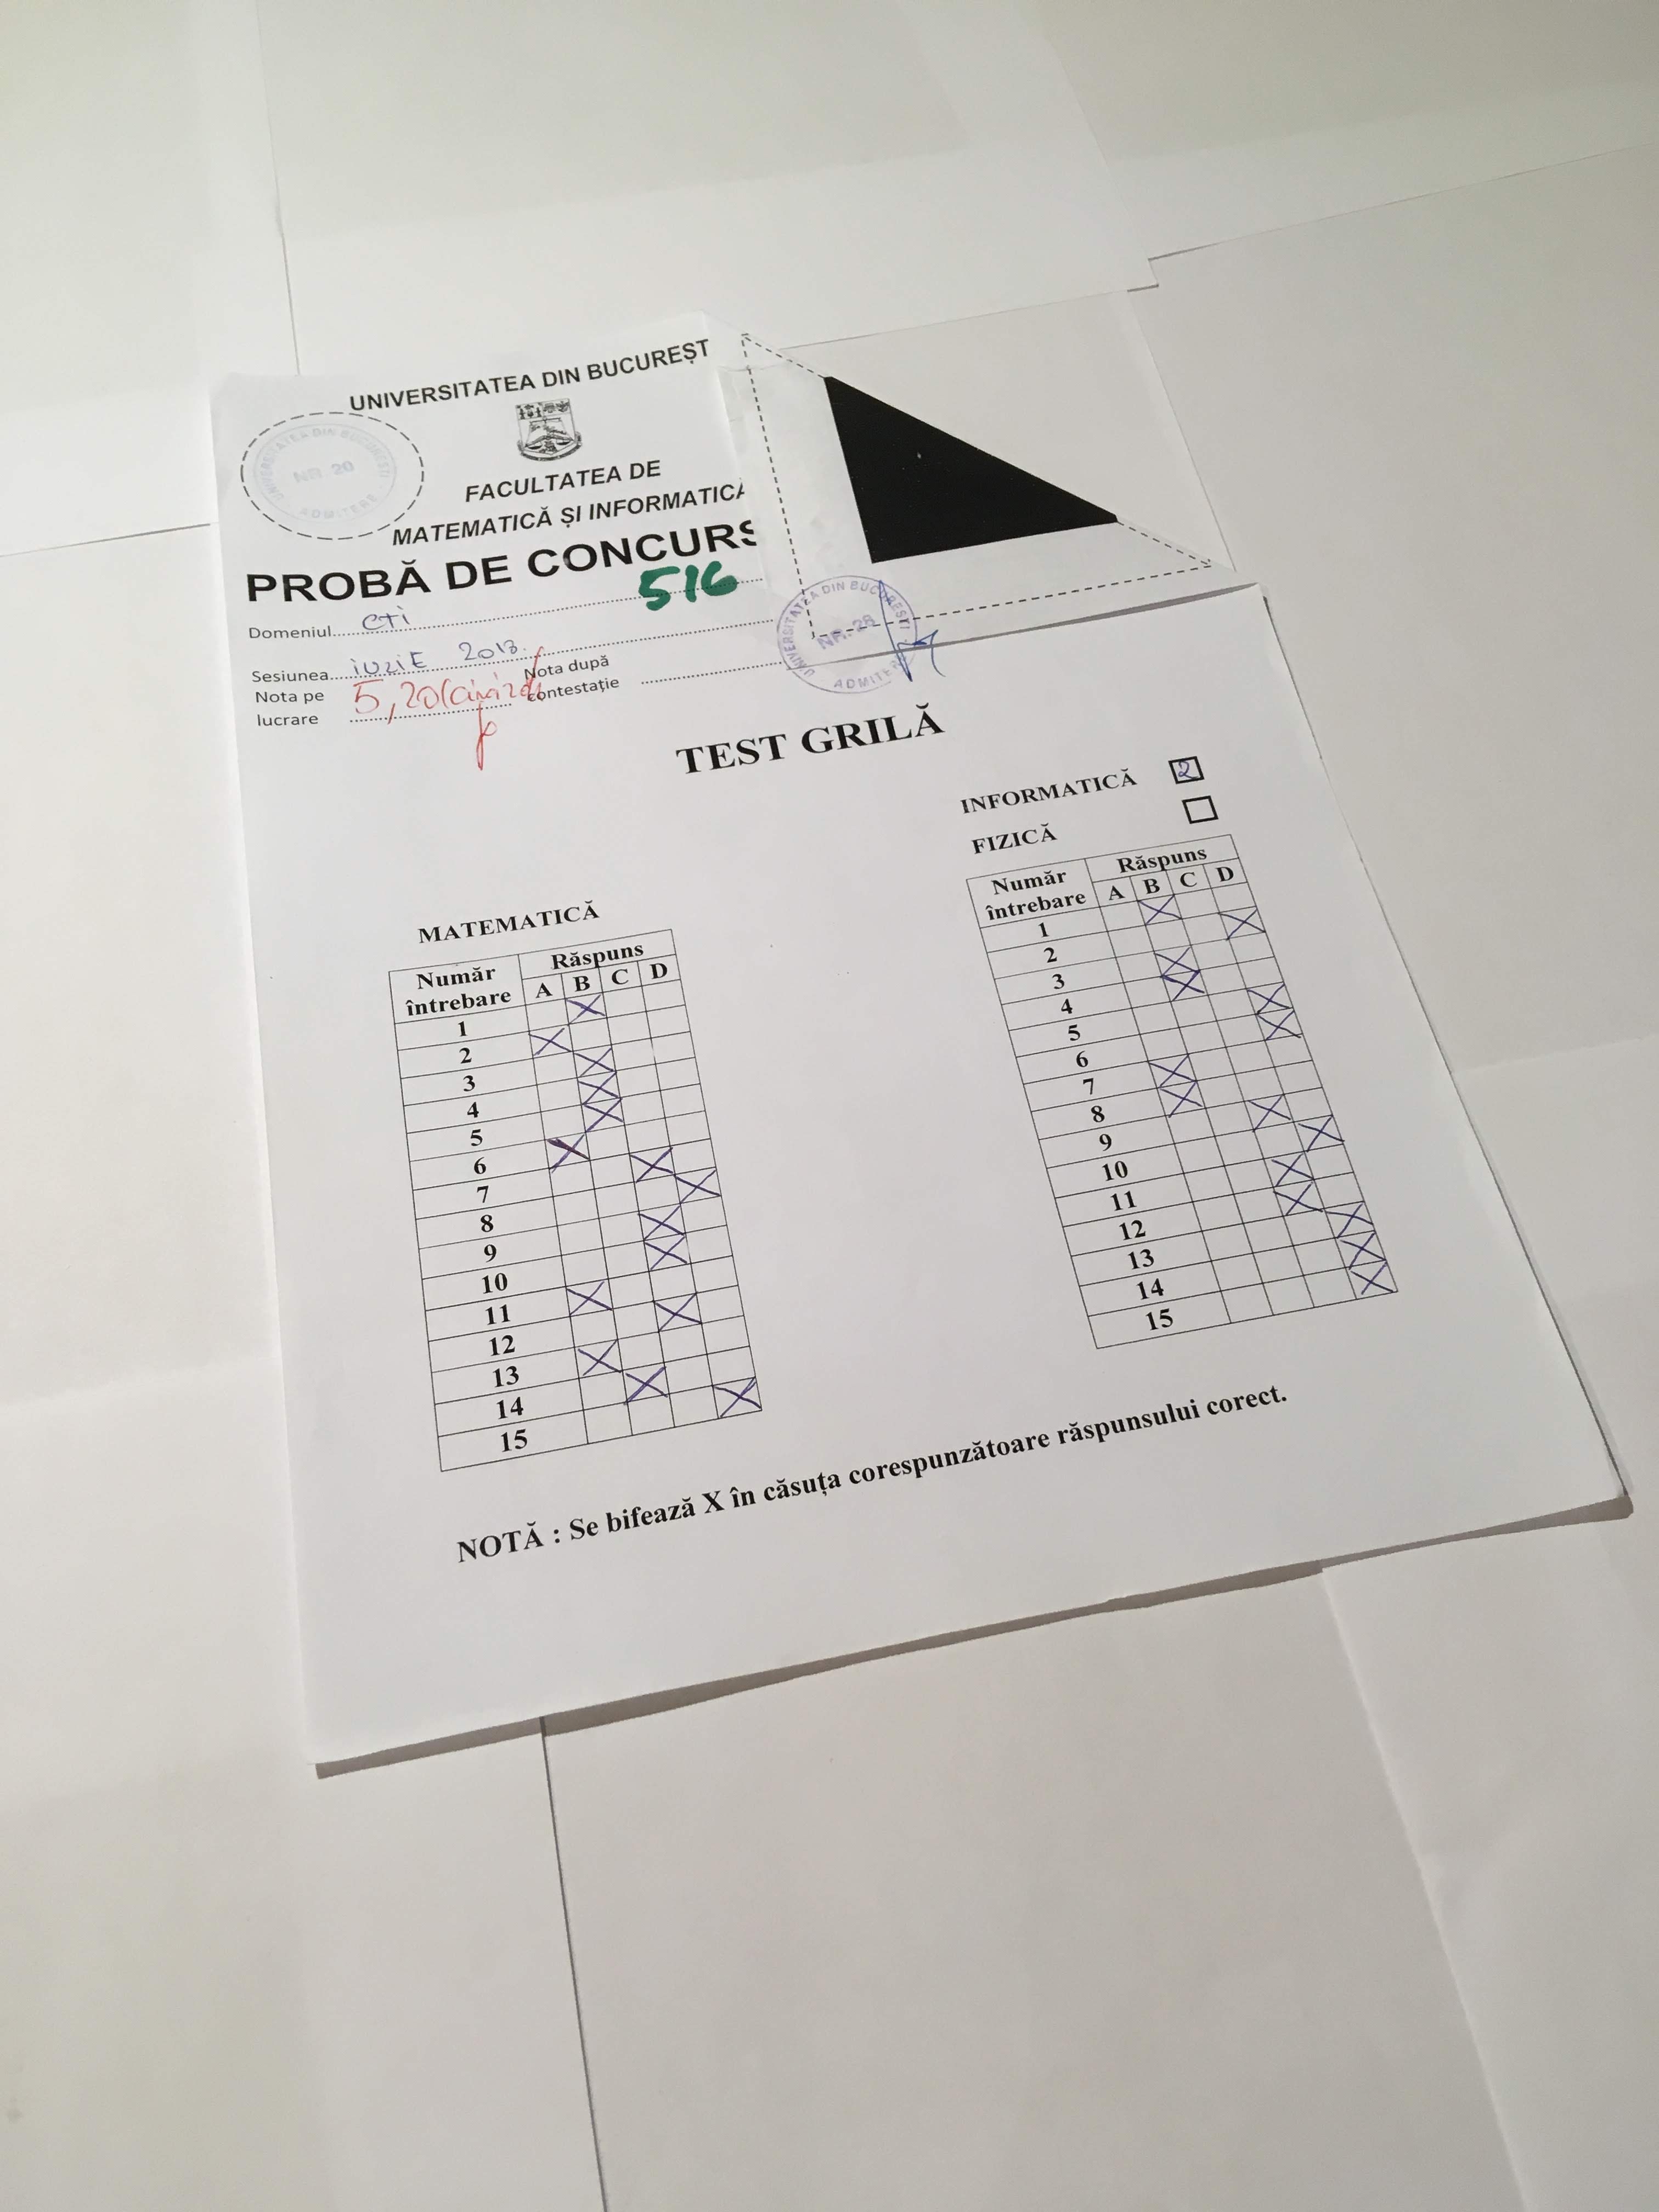 UNIVERSITATEA DIN BUCUREȘT
UNIVERSITATEA DIN BUCUREȘTI
NR. 20
ADMITERE
FACULTATEA DE
MATEMATICĂ ȘI INFORMATICĂ
PROBĂ DE CONCURS
516
Domeniul CTI
Sesiunea iuliE 2018.
Nota pe lucrare 5,20
Nota după contestație
UNIVERSITATEA DIN BUCUREȘTI
NR. 28
ADMITERE
TEST GRILĂ
INFORMATICĂ 2
FIZICĂ
MATEMATICĂ
Număr întrebare Răspuns
A B C D
1 X
2 X
3 X
4 X
5 X
6 X
7 X
8 X
9 X
10 X
11 X
12 X
13 X
14 X
15 X
Număr întrebare Răspuns
A B C D
1 X
2 X
3 X
4 X
5 X
6 X
7 X
8 X
9 X
10 X
11 X
12 X
13 X
14 X
15 X
NOTĂ : Se bifează X în căsuța corespunzătoare răspunsului corect.